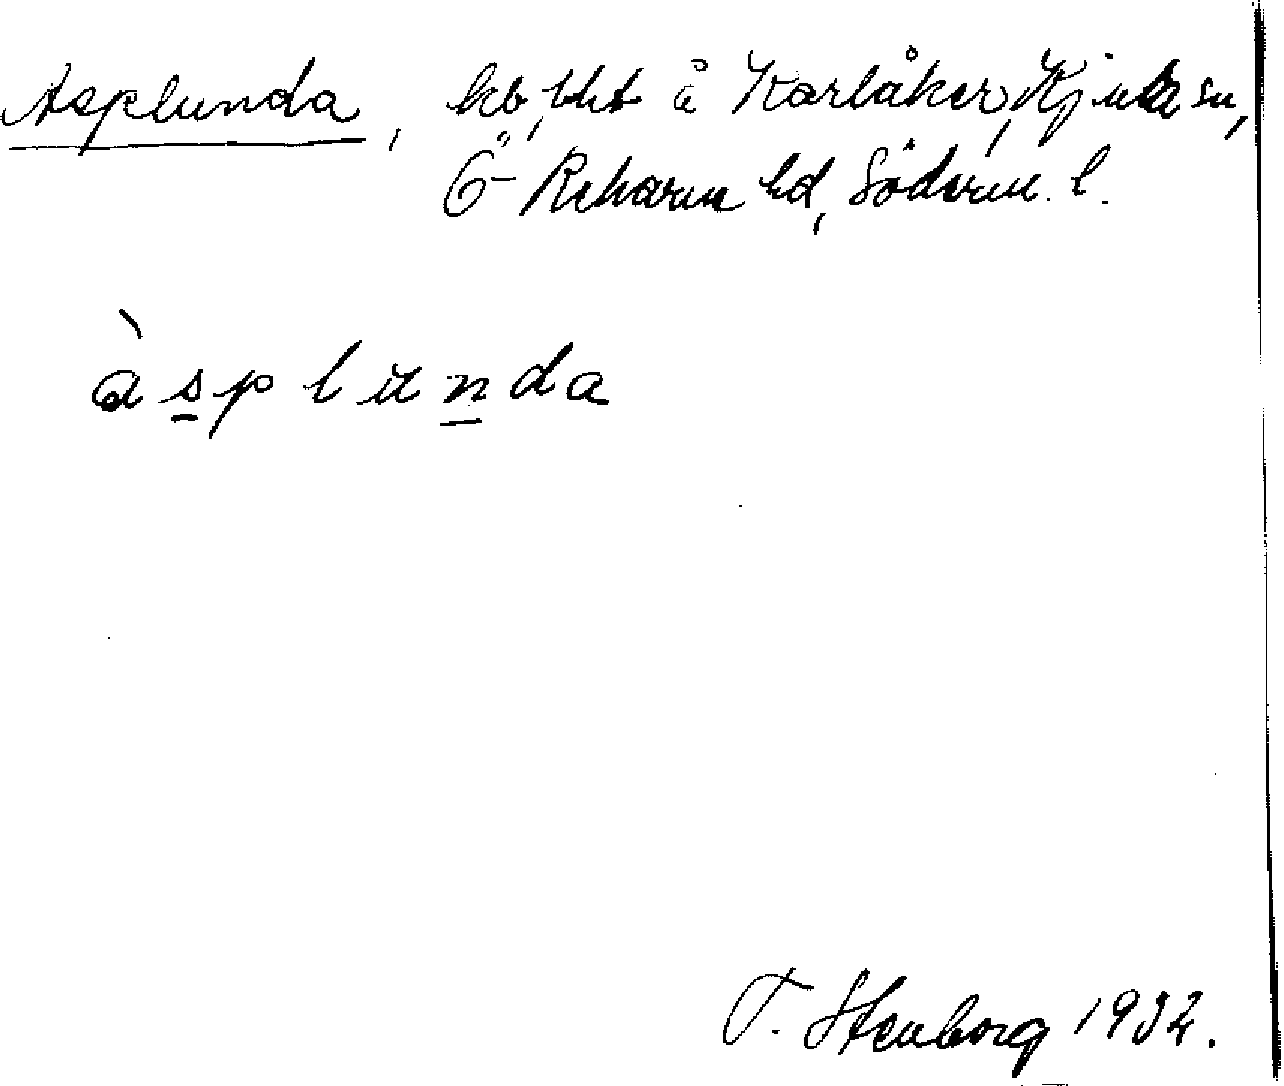 Asplunda, hb, tht å Karlåker, Kjula sn,
Ö Rekarne hd, Söderm. l.
àsplunda
T. Stenborg 1932.